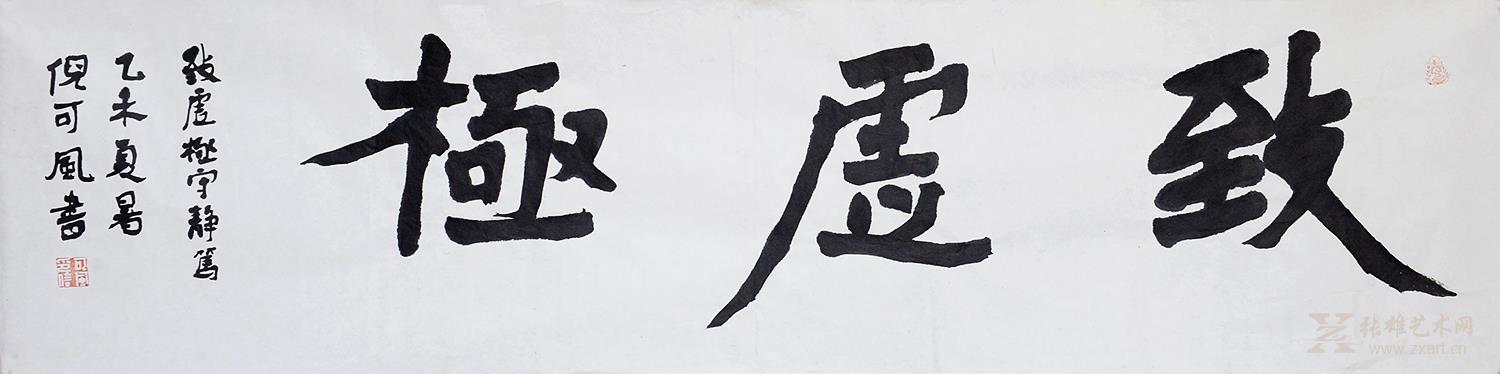 致虛極
致虛極守靜篤
乙未夏暑
倪可風書
张雄艺术网
www.zxart.cn